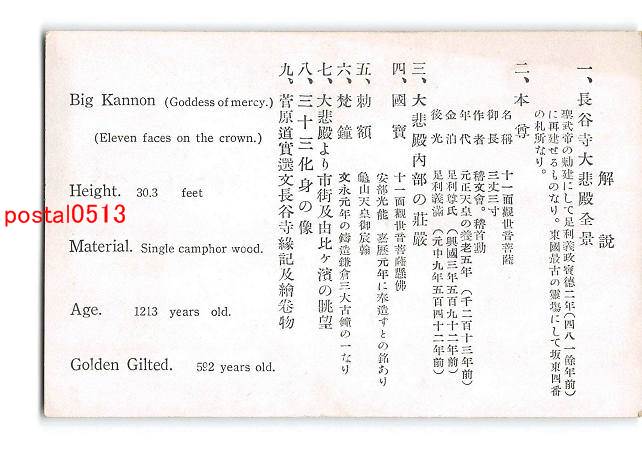 解説
一、長谷寺大悲殿全景
聖武帝の勅建にして足利義政寛德二年(四八一餘年前)
に再建せるものなり。東國最古の靈塲にして坂東四番
の札所なり。
二、本尊
名稱 十一面觀世音菩薩
御長 三丈三寸
作者 稽文會。稽首勳
年代 元正天皇の養老五年(千二百十三年前)
金泊 足利尊氏(興國三年五百九十二年前)
後光 足利義滿(元中九年五百四十二年前)
三、大悲殿內部の莊嚴
四、國寶 十一面觀世音菩薩懸佛
安部光能 嘉慶元年に奉造すとの銘あり
五、勅額 龜山天皇御宸翰
六、梵鐘 文永元年の鑄造鎌倉三大古鐘の一なり
七、大悲殿より市街及由比ヶ濱の眺望
八、三十三化身の像
九、菅原道實選文長谷寺緣記及繪卷物
Big Kannon (Goddess of mercy.)
(Eleven faces on the crown.)
Height. 30.3 feet
Material. Single camphor wood.
Age. 1213 years old.
Golden Gilted. 592 years old.
postal0513